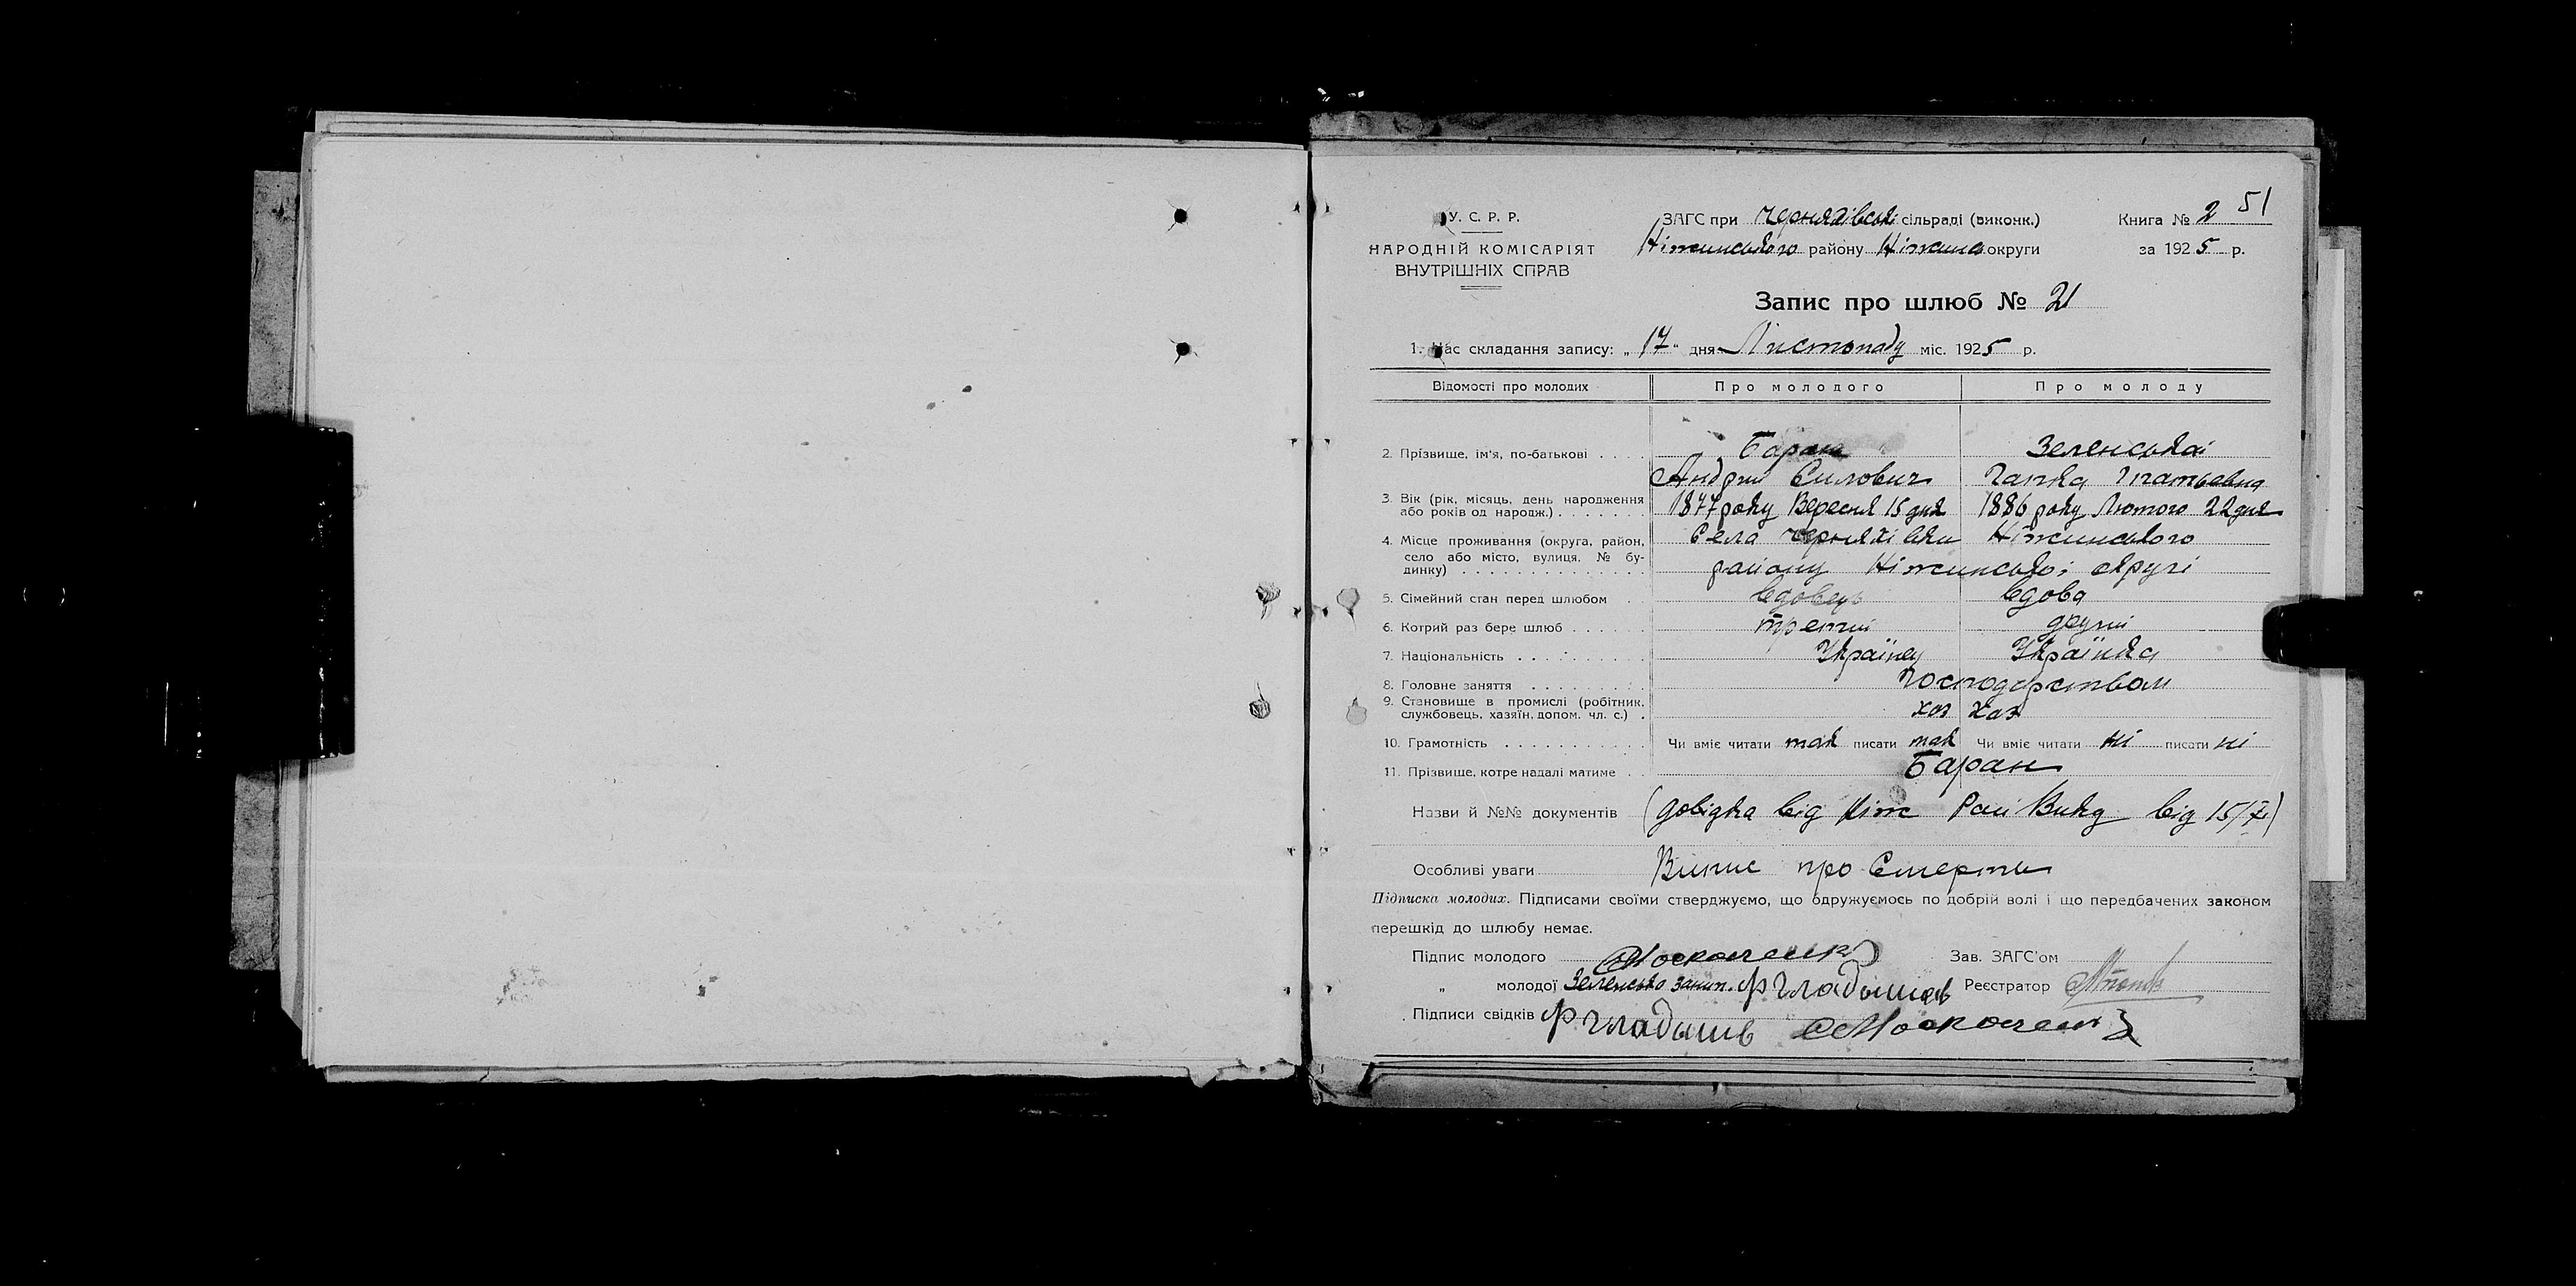 51
У. С. Р. Р.
НАРОДНІЙ КОМІСАРІЯТ
ВНУТРІШНІХ СПРАВ
ЗАГС при Черняхівській сільраді (виконк.)
Ніжинського району Ніжинс округи
Книга № 2
за 1925 р.
Запис про шлюб № 21
1. Час складання запису: „17" дня Листопаду міс. 1925 р.
Відомості про молодих Про молодого Про молоду
2. Прізвище, ім'я, по-батькові . . . . Баран Зеленська
Андрій Силович Гапка Гнатьевна
3. Вік (рік, місяць, день народження або років од народж.) . . . . . . . 1877 року Вересня 15 дня 1886 року Лютого 22 дня
4. Місце проживання (округа, район, Села Черняхівки Ніжинського
село або місто, вулиця, № бу-
динку) . . . . . . . . . . . . . . району Ніжинської округі
5. Сімейний стан перед шлюбом . вдовець вдова
6. Котрий раз бере шлюб . . . . . . третий другий
7. Національність . . . . . . . . . . Українец Українка
8. Головне заняття . . . . . . . . . Господарством
9. Становище в промислі (робітник,
службовець, хазяїн, допом. чл. с.) . хаз хаз
10. Грамотність . . . . . . . . . . . Чи вміє читати так писати так Чи вміє читати ні писати ні
11. Прізвище, котре надалі матиме . . Баран
Назви й №№ документів (довідка від Ніж Рай Викд від 15/7)
Особливі уваги Випис про Смерть
Підписка молодих. Підписами своїми стверджуємо, що одружуємось по добрій волі і що передбачених законом
перешкід до шлюбу немає.
Підпис молодого Зав. ЗАГС'ом
„ молодої Зеленська Реєстратор
Підписи свідків